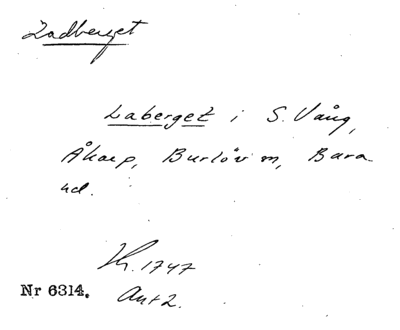 Ladberget
Laberget i S. Vång,
Åkarp, Burlöv m, Bara
hd.
Lh. 1747
Nr 6314. Ant 2.